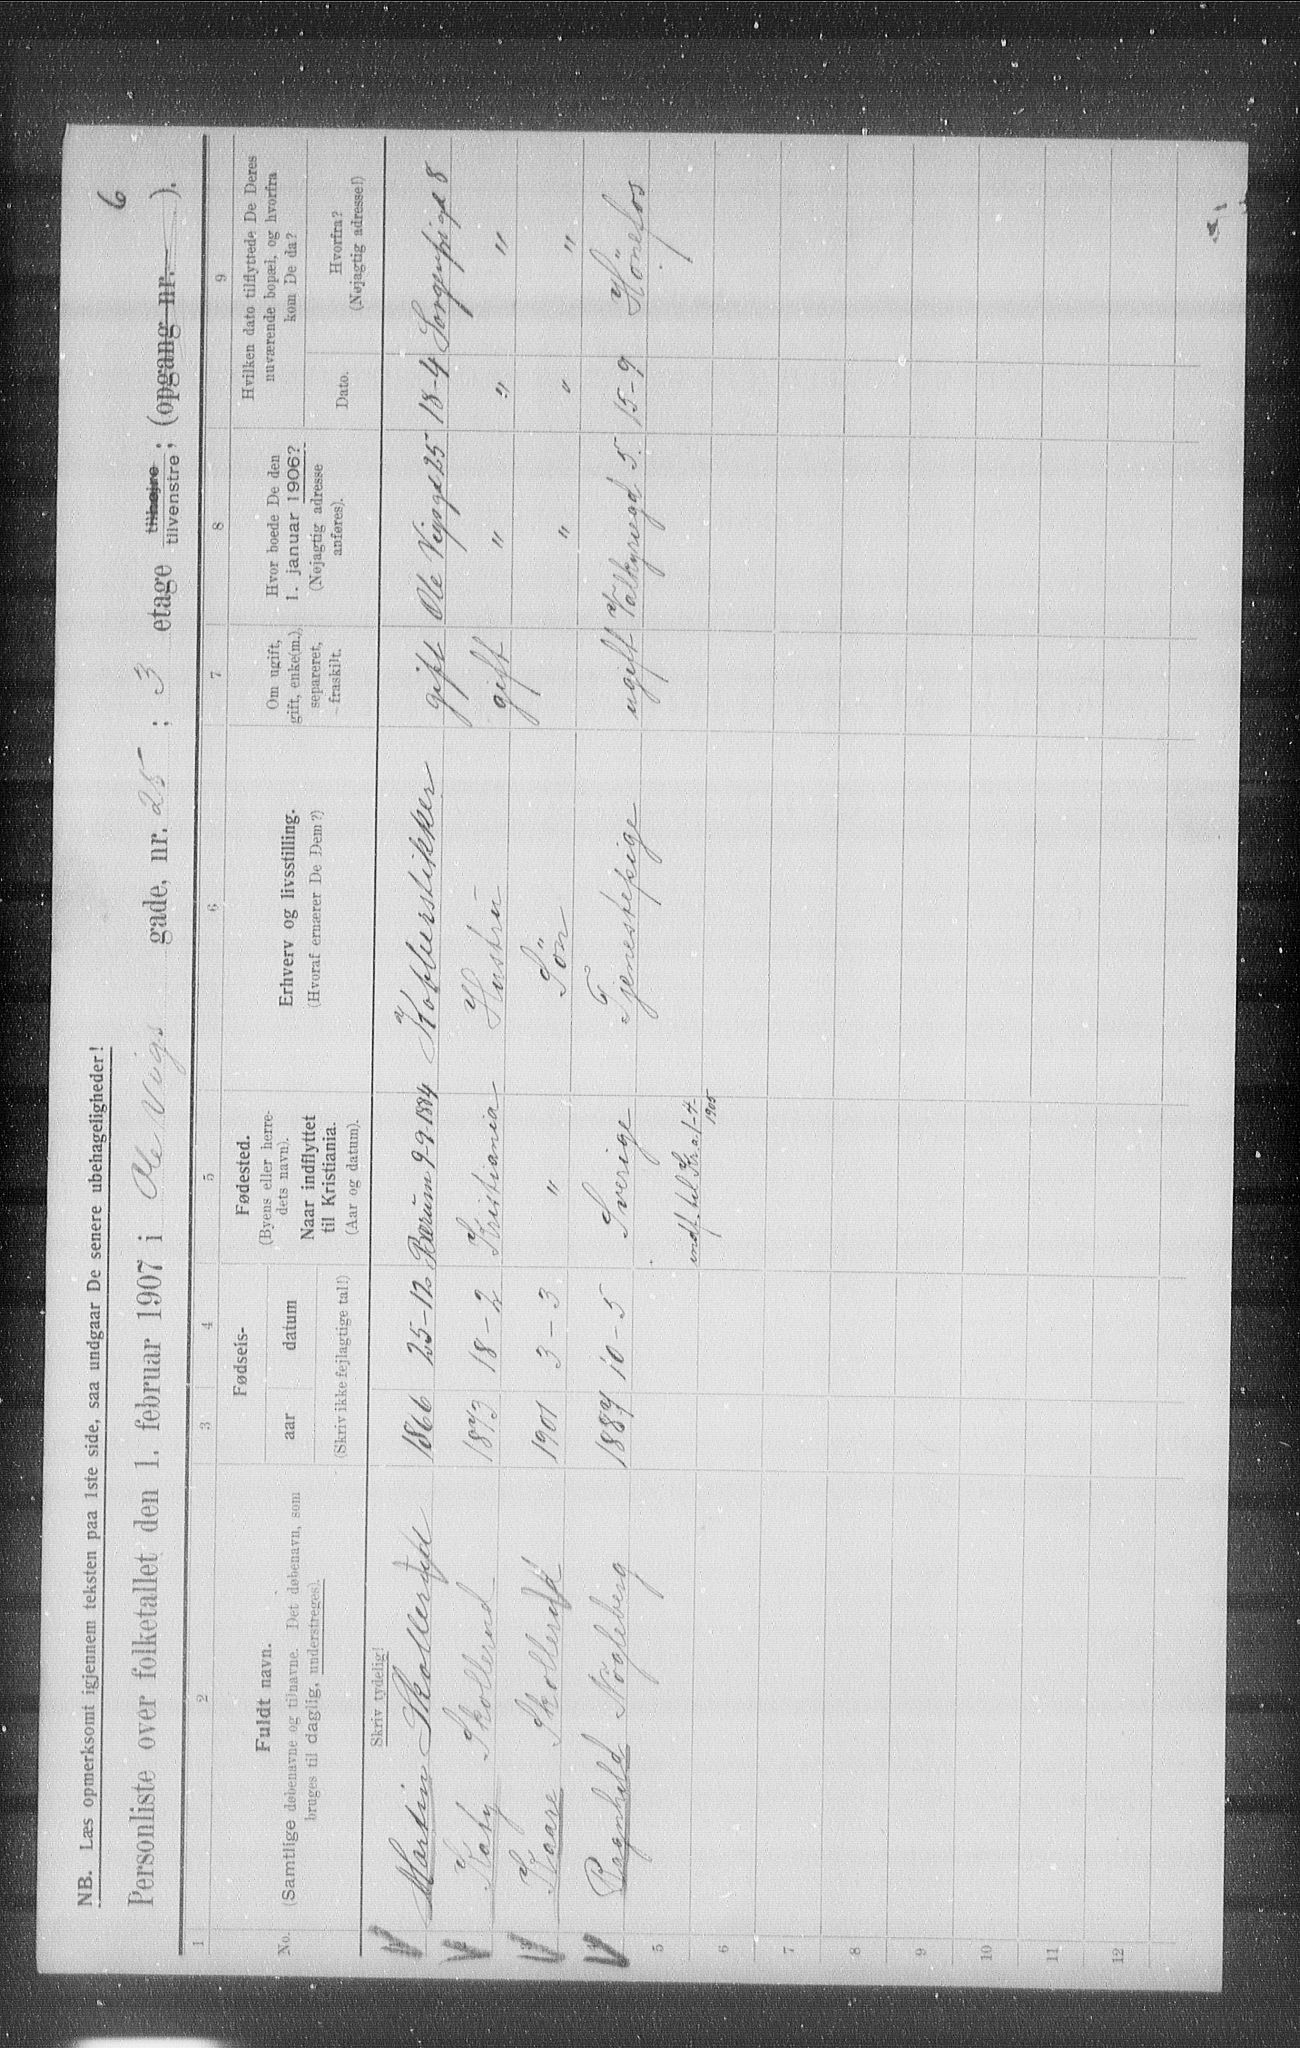 6
NB. Læs opmerksomt igjennem teksten paa 1ste side, saa undgaar De senere ubehageligheder!
Personliste over folketallet den 1. februar 1907 i Ole Vigs gade, nr. 25 ; 3 etage tilhøjre tilvenstre ; (opgang nr. ).
1 2 3 4 5 6 7 8 9
No.
Fuldt navn.
(Samtlige døbenavne og tilnavne. Det døbenavn, som
bruges til daglig, understreges).
Fødsels-
aar datum
(Skriv ikke fejlagtige tal!)
Fødested.
(Byens eller herre-
dets navn).
Naar indflyttet
til Kristiania.
(Aar og datum).
Erhverv og livsstilling.
(Hvoraf ernærer De Dem?)
Om ugift,
gift, enke(m.),
separeret,
fraskilt.
Hvor boede De den
1. januar 1906?
(Nøjagtig adresse
anføres).
Hvilken dato tilflyttede De Deres
nuværende bopæl, og hvorfra
kom De da?
Dato.
Hvorfra?
(Nøjagtig adresse!)
Skriv tydelig!
Martin Skollerud 1866 25-12 Bærum 9-9-1884 Kobberstikker gift Ole Vigsgd 25 18-4 Sorgenfrigd 8
Katy Skollerud 1873 18-2 Kristiania Hustru gift " " "
Kaare Skollerud 1901 3-3 " Søn " " "
Ragnhild Nøgleberg 1887 10-5 Sverige Tjenestepige ugift Valkyriegd 5. 15-9 Hønefos
5 indf. til Kr.a 1-4-
1905
6
7
8
9
10
11
12